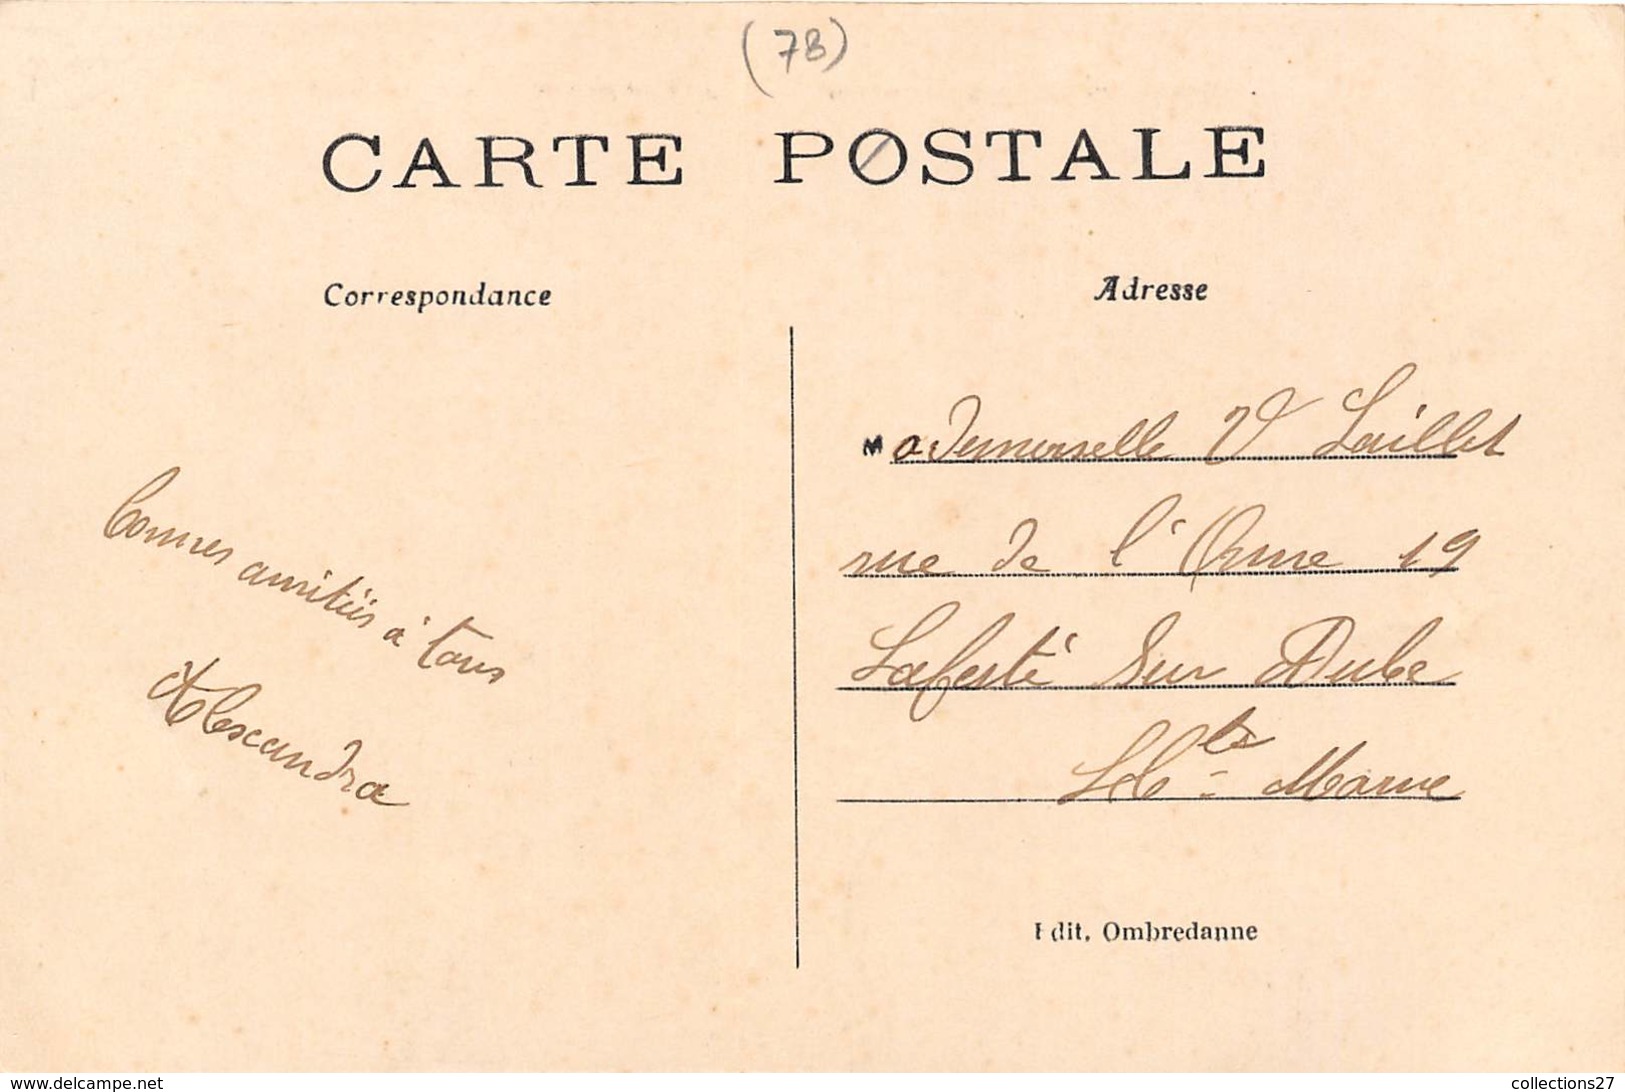 (78)
CARTE POSTALE
Correspondance
Adresse
Mademoiselle V Laillet
rue de l'Orme 19
Laferté Sur Aube
Hte - Marne
Bonnes amitiés à tous
Alexandra
Edit. Ombredanne
www.delcampe.net
collections27